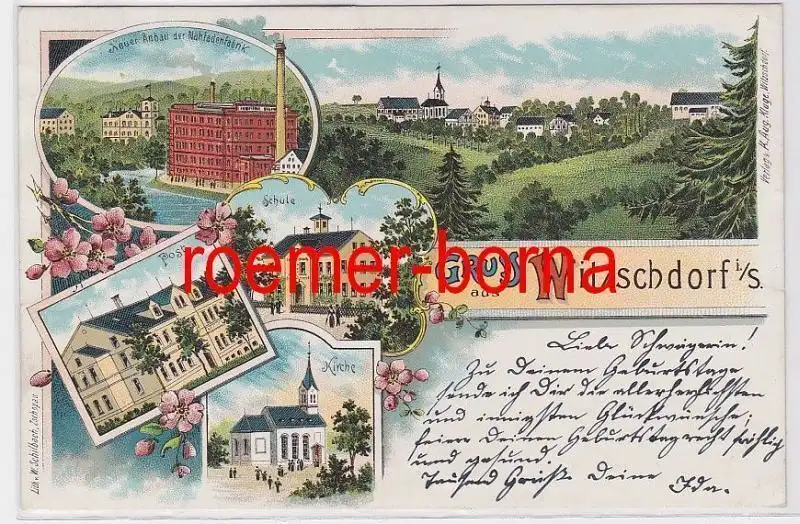 Neuer Anbau der Nähfadenfabrik
Schule
Post
Kirche
roemer-borna
Gruss
aus
schdorf i/S.
Verlag v. R. Aug. Kluge, Witzschdorf.
Lith. v. W. Schilbach, Zschopau
Liebe Schwägerin!
Zu Deinem Geburtstage
sende ich Dir die allerherzlichsten
und innigsten Glückwünsche;
feiere Deinen Geburtstag recht fröhlich
und gesund.
Tausend Grüße. Deine Ida.